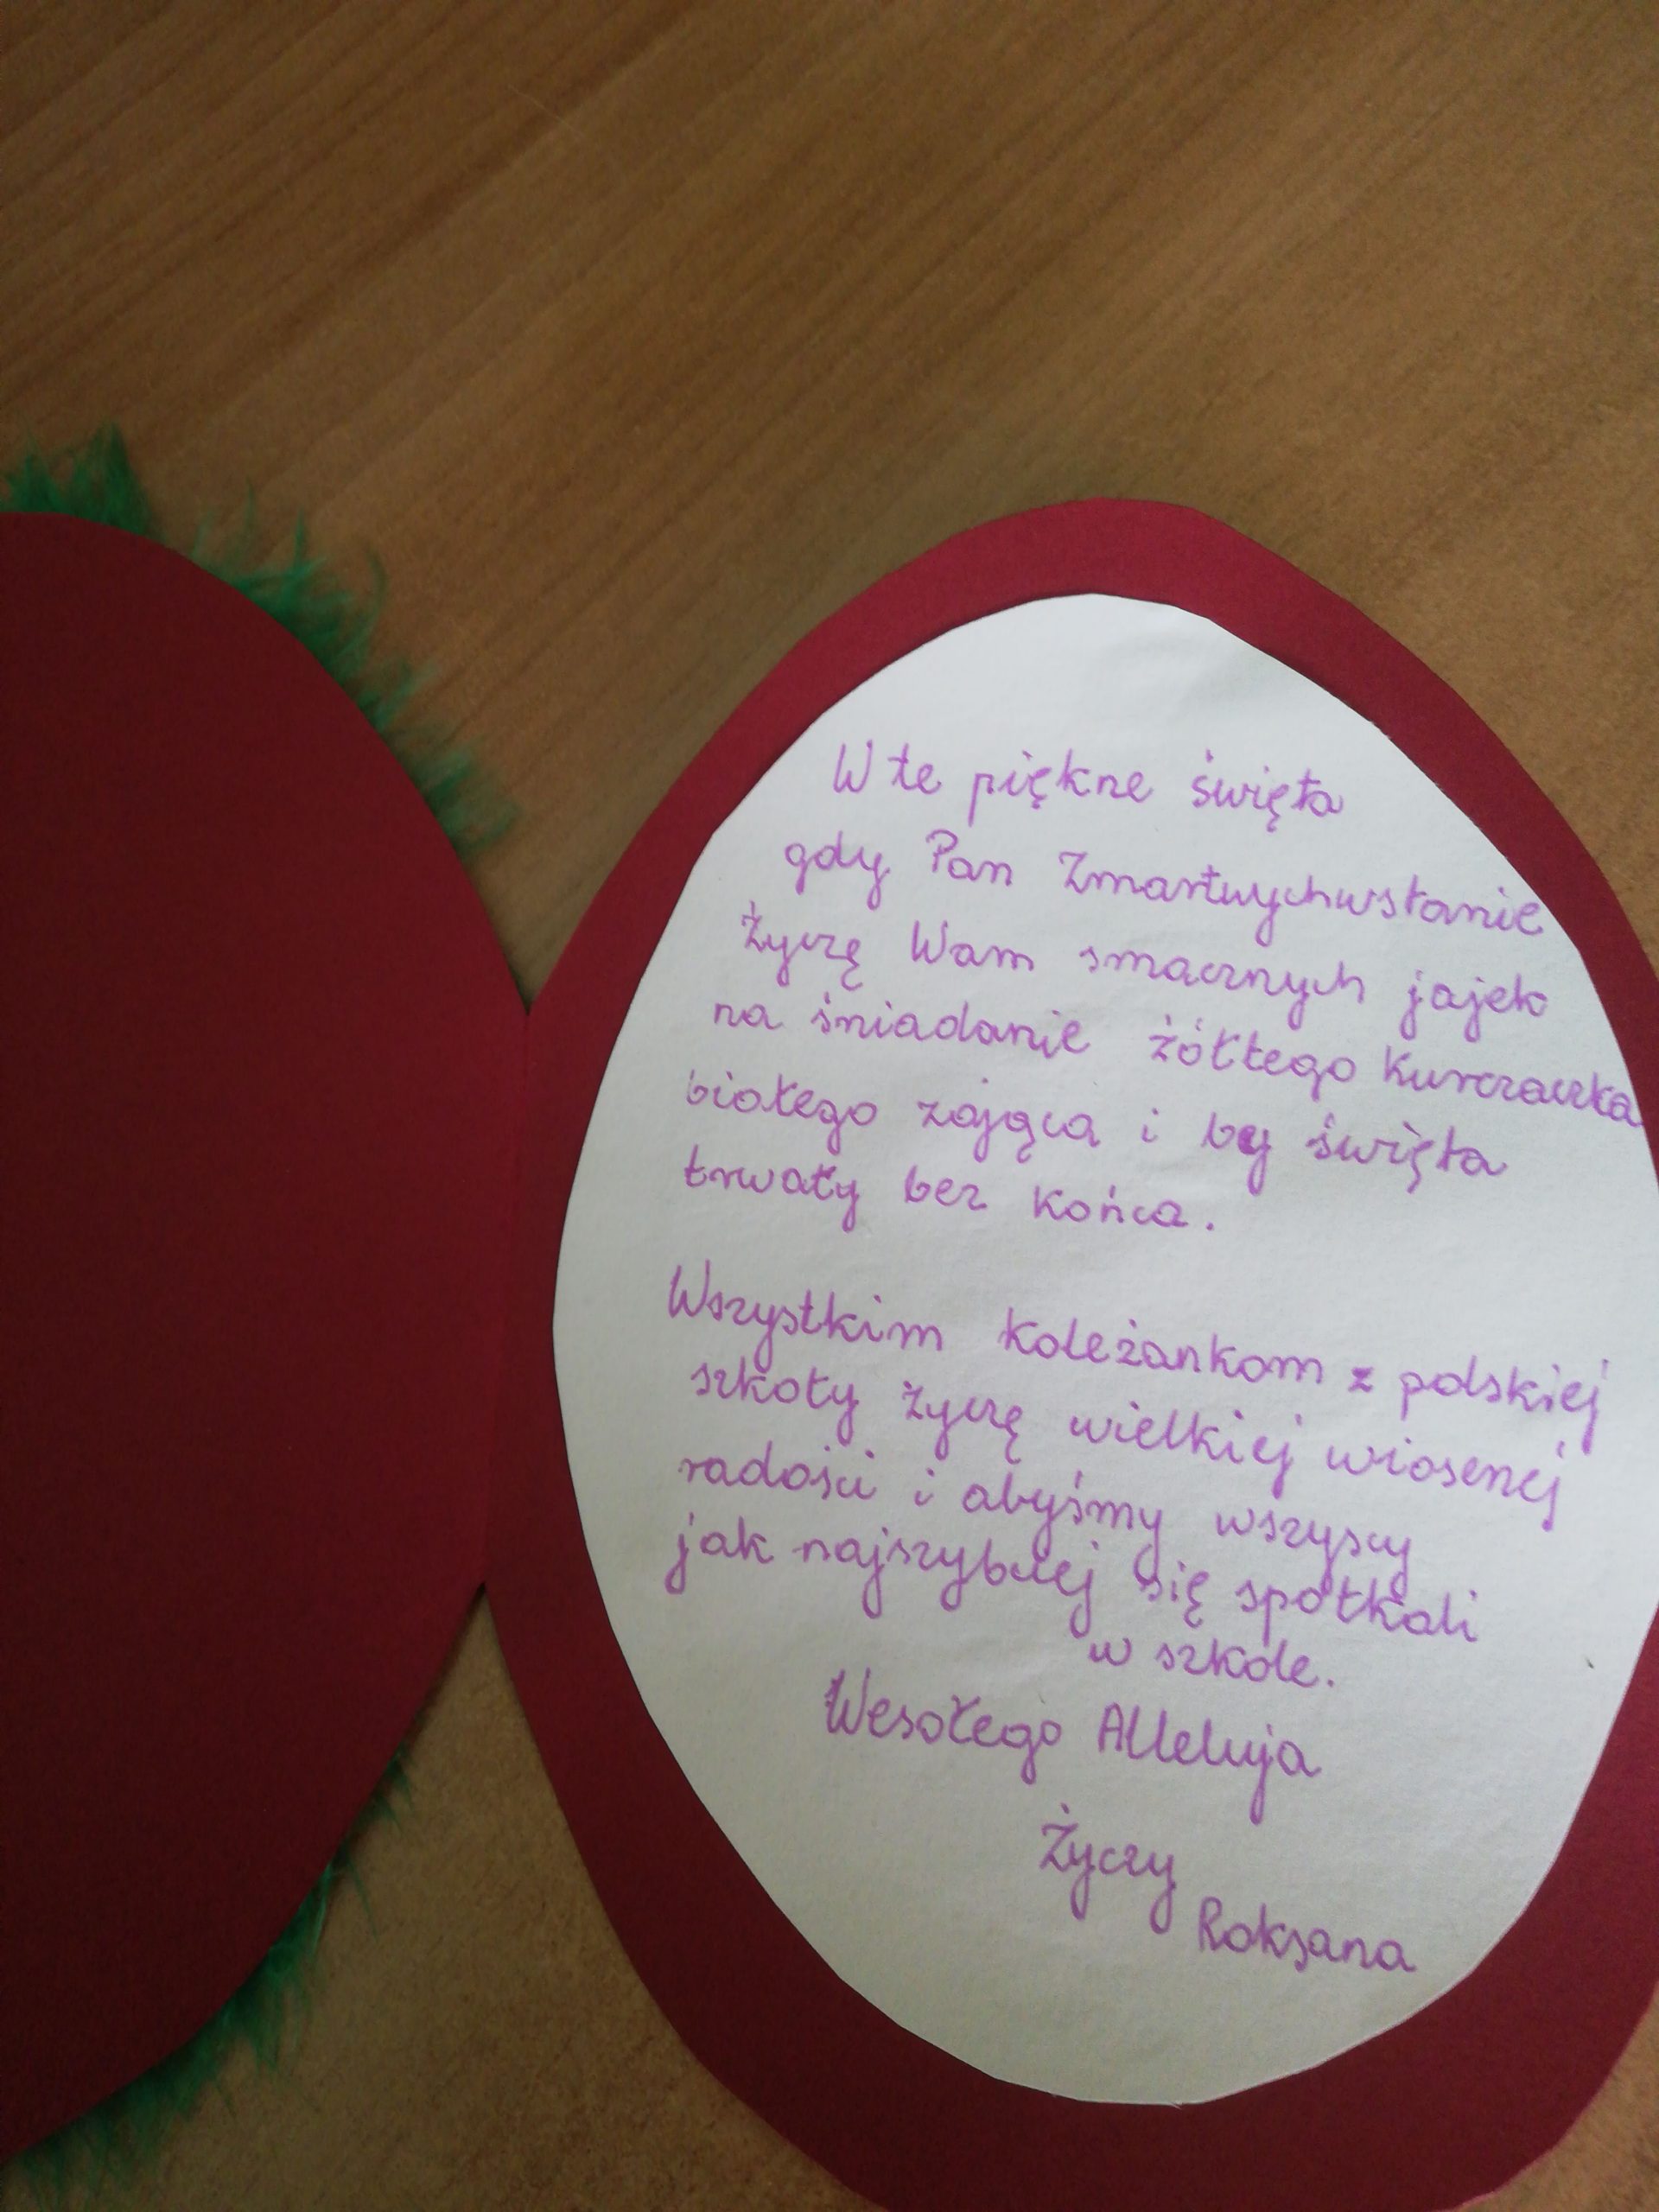 W te piękne święta
gdy Pan Zmartwychwstanie
życzę Wam smacznych jajek
na śniadanie żółtego kurczaczka
białego zająca i by święta
trwały bez końca.
Wszystkim koleżankom z polskiej
szkoły życzę wielkiej wiosenej
radości i abyśmy wszyscy
jak najszybciej się spotkali
w szkole.
Wesołego Alleluja
Życzy
Roksana